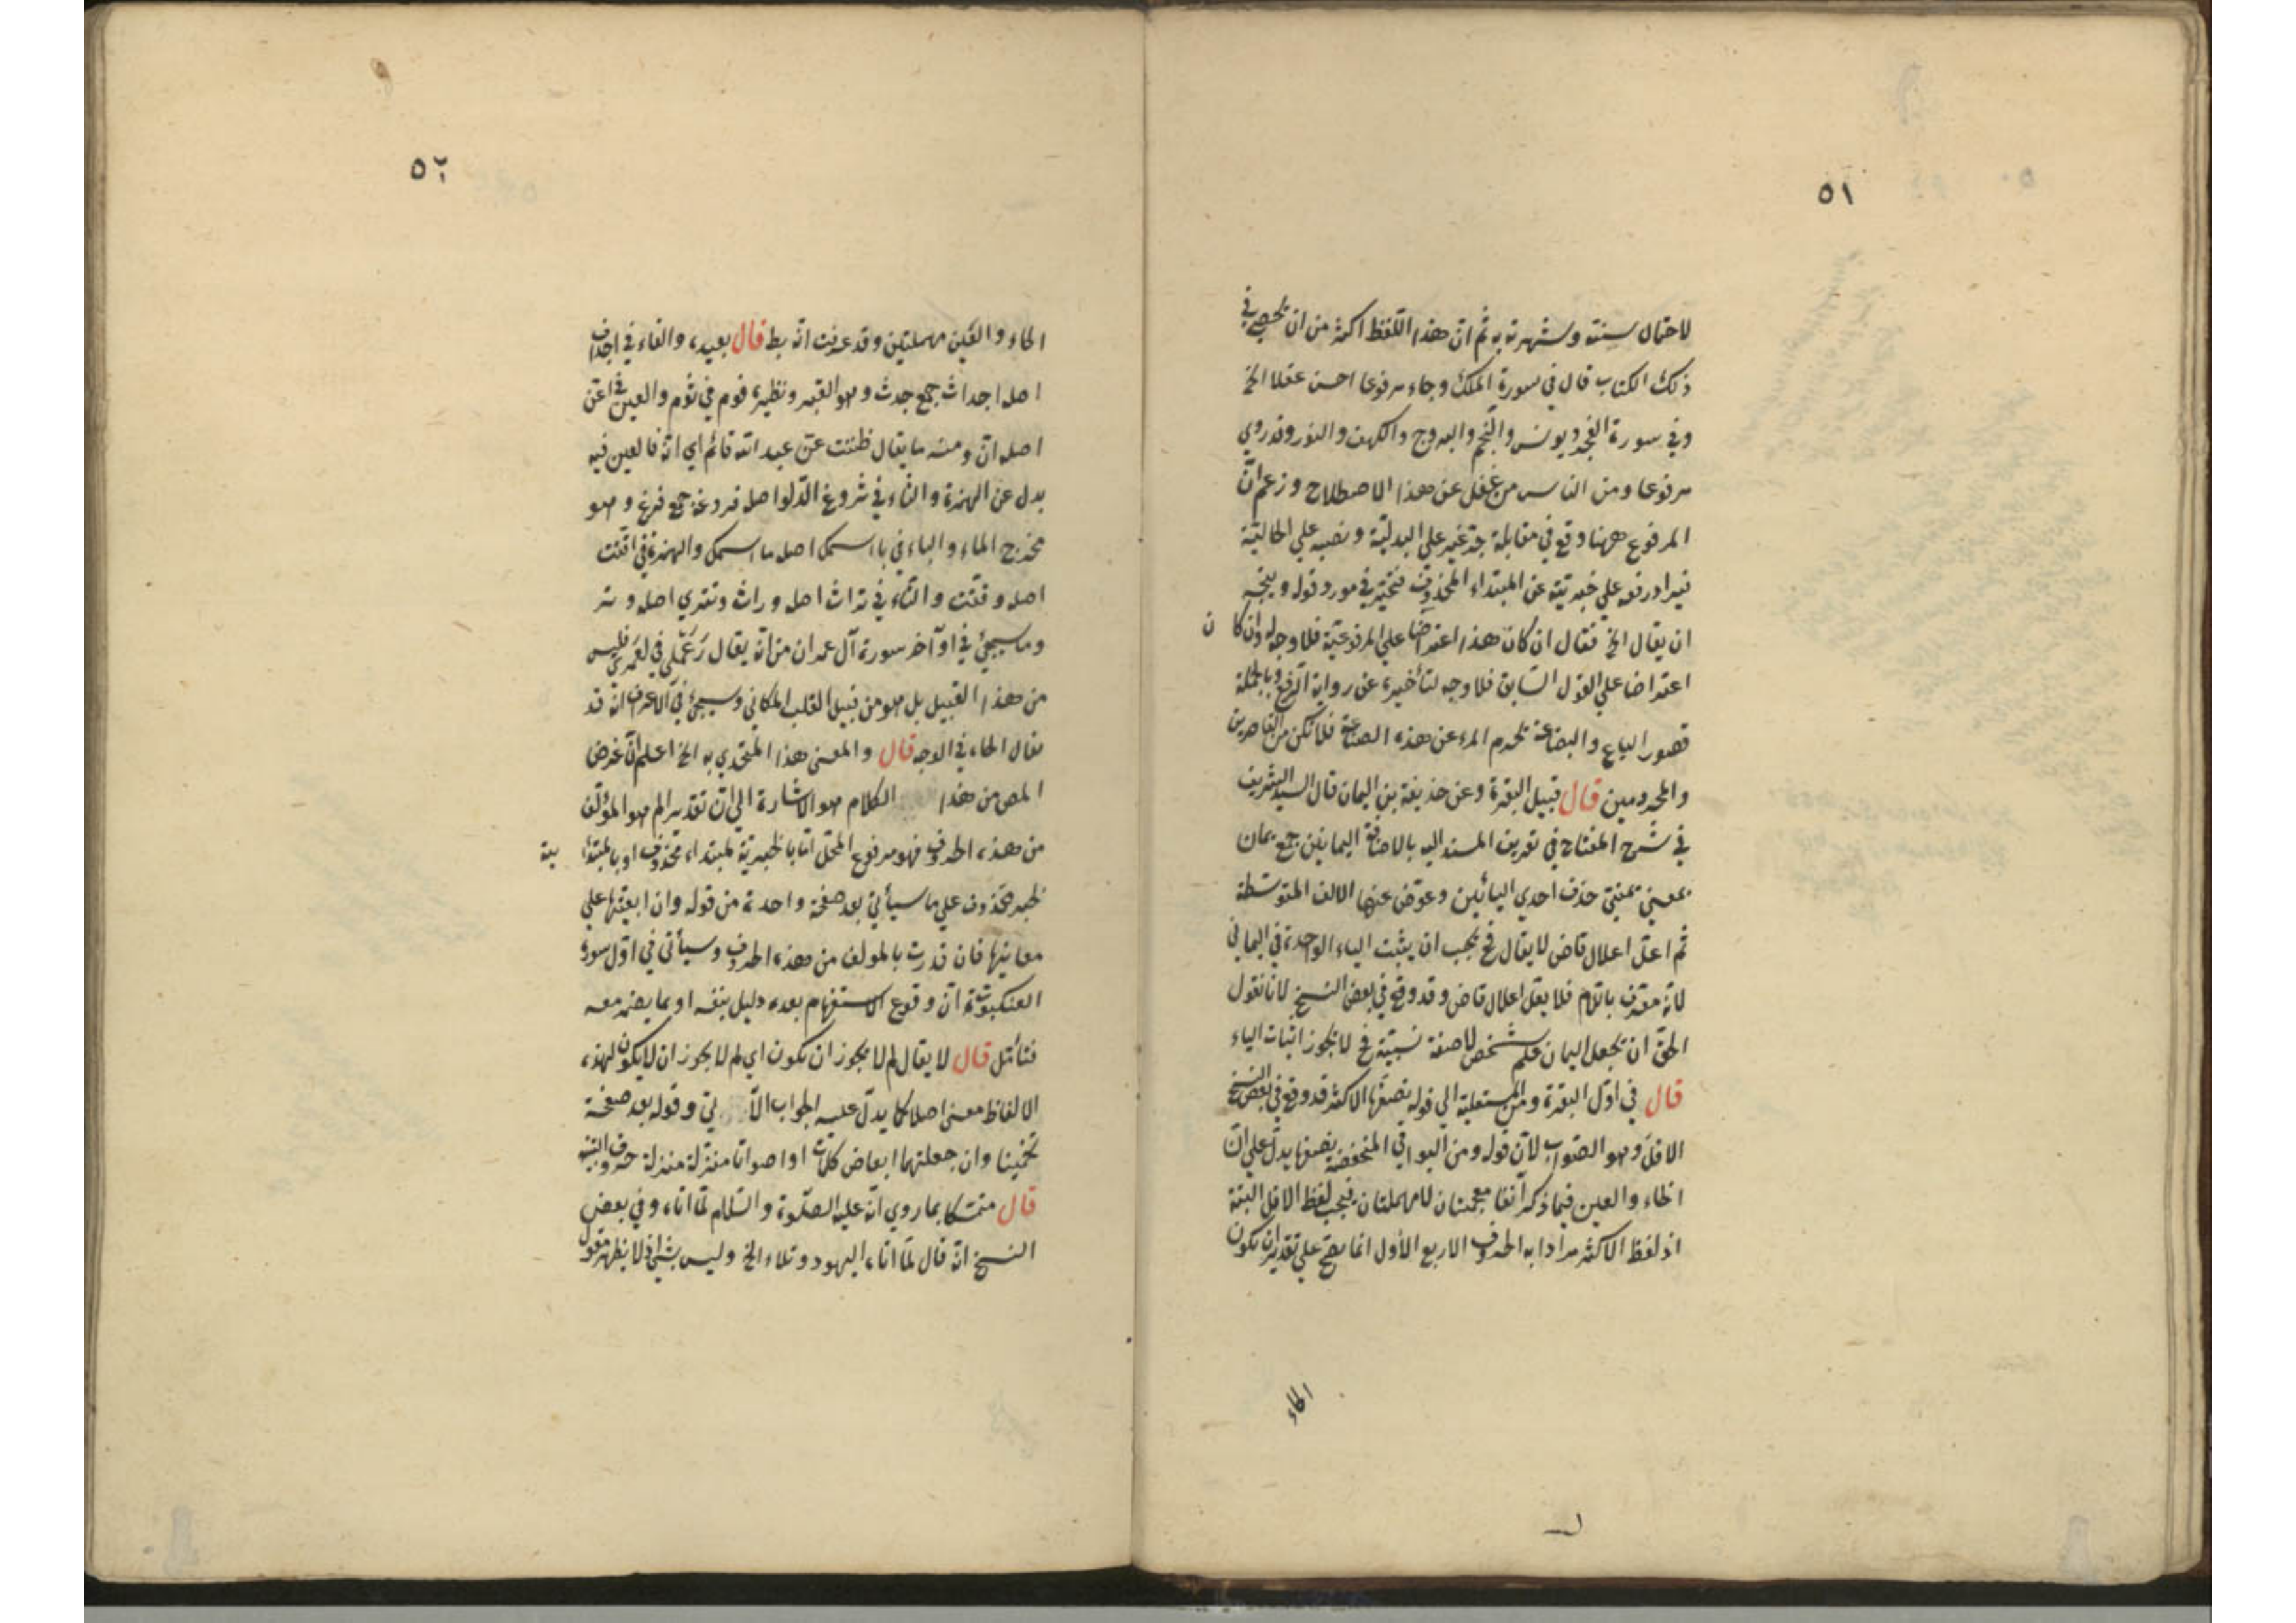 ٥١
لاحتمال سنته وشهرته به ثم ان هذا اللفظ اكثر من ان يحصى في
ذلك الكتاب قال في سورة الملك وجاء مرفوعا احسن عقلا الخ
وفي سورة الفجر ويونس والنجم والبروج والكهف والنور وقد روي
مرفوعا ومن الناس من غفل عن هذا الاصطلاح وزعم انّ
المرفوع ههنا وقع في مقابلة جر غير على البدليّة ونصبه على الحاليّة
فيراد رفعه على خبريته عن المبتداء المحذوف فتحيّر في مورد قوله ويتجه
ان يقال الخ فقال ان كان هذا اعتراضا على المرفوعيّة فلا وجه له وان كا ن
اعتراضا على القول السّابق فلا وجه لتأخيره عن رواية الرفع وبالجملة
قصور الباع والبضاعة يحرم المرء عن هذه الصناعة فلا تكن من القاصرين
والمحرومين قال قبيل البقرة وعن حذيفة بن اليمان قال السيد الشريف
في شرح المفتاح في تعريف المسند اليه بالاضافة اليمانين جمع يمان
بمعنى يمنيّ حذف احدي اليائين وعوّض عنها الالف المتوسّطة
ثم اعلّ اعلال قاض لا يقال فح يجب ان يثبت الياء الواحدة في اليماني
لانه معرّف باللام فلا يعلّ اعلال قاض وقد وقع في بعض النسخ لانا نقول
الحقّ ان يجعل اليمان علم شخص لا صفة نسبيّة فح لا يجوز اثبات الياء
قال في اوّل البقرة ومن المستعلية الي قوله نصفها الاكثر قد وقع في بعض النسخ
الاقلّ وهو الصّواب لانّ قوله ومن البواقي المنخفضة نصفها يدلّ على انّ
الخاء والعين فيما ذكر آنفا معجمتان لا مهملتان فيجب لفظ الاقل البتة
اذ لفظ الاكثر مرادا به الحروف الاربع الأول انما يصحّ على تقدير ان يكون
الحاء
٥٢
الحاء والغين مهملتين وقد عرفت انّه بط قال بعيده والفاء في اجداف
اصله اجداث جمع جدث وهو القبر ونظيره فوم في ثوم والعين في اعن
اصله انّ ومنه ما يقال ظننت عنّ عبد الله قائم اي انّه فالعين فيه
بدل عن الهمزة والثاء في ثروغ الدّلو اصله فروغ جمع فرغ وهو
مخرج الماء والباء في با اسمك اصله ما اسمك والهمزة في اقّتت
اصله وقّتت والتّاء في تراث اصله وراث وتتري اصله وتر
وما سيجئ في اوآخر سورة آل عمران من انّه يقال رَعَمْلي في لعَمري فليس
من هذا القبيل بل هو من قبيل القلب المكاني وسيجئ في الاعراف انّه قد
يقال الحاء في الوجه قال والمعنى هذا المتحدي به الخ اعلم انّ غرض
المص من هذا الكلام هو الاشارة الى انّ تقدير الم هو المؤلّف
من هذه الحروف فهو مرفوع المحلّ امّا بالخبريّة لمبتداء محذوف او بالمبتدا ئية
لخبر محذوف على ما سيأتي بعد صفحة واحدة من قوله وان ابقيتها على
معانيها فان قدرت بالمولف من هذه الحروف وسيأتي في اوّل سورة
العنكبوت انّ وقوع الاستفهام بعده دليل بنفسه او بما يضمر معه
فتأمّل قال لا يقال لم لا يجوز ان يكون اي لم لا يجوز ان لا يكون لهذه
الالفاظ معنى اصلا كما يدلّ عليه الجواب الآ تي وقوله بعد صفحة
تخمينا وان جعلتهما ابعاض كلمات او اصواتا منزّلة منزلة حروف التنبيه
قال متمسّكا بما روي انّه عليه الصّلوة والسّلام لمّا اتاه وفي بعض
النسخ انّه قال لمّا اتاه اليهود وتلاء الخ وليس بشئ اذ لا يظهر مقول